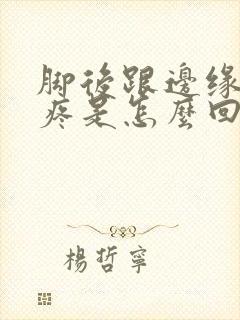 脚後跟邊缘
疼是怎麼回
楊哲寧